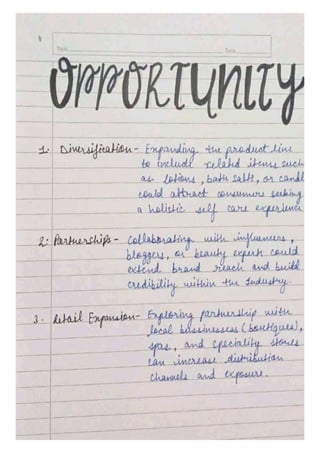 Topic Date
OPPORTUNITY
1. Diversification - Expanding the product line
to include related items such
as lotions, bath salts, or candl
could attract consumers seeking
a holistic self care experience
2. Partnerships - Collaborating with influencers,
bloggers, or beauty experts could
extend brand reach and build
credibility within the Industry.
3. Retail Expansion - Exploring partnership with
local bussinessess (boutiques),
spas, and speciality stores
can increase distribution
channels and exposure.